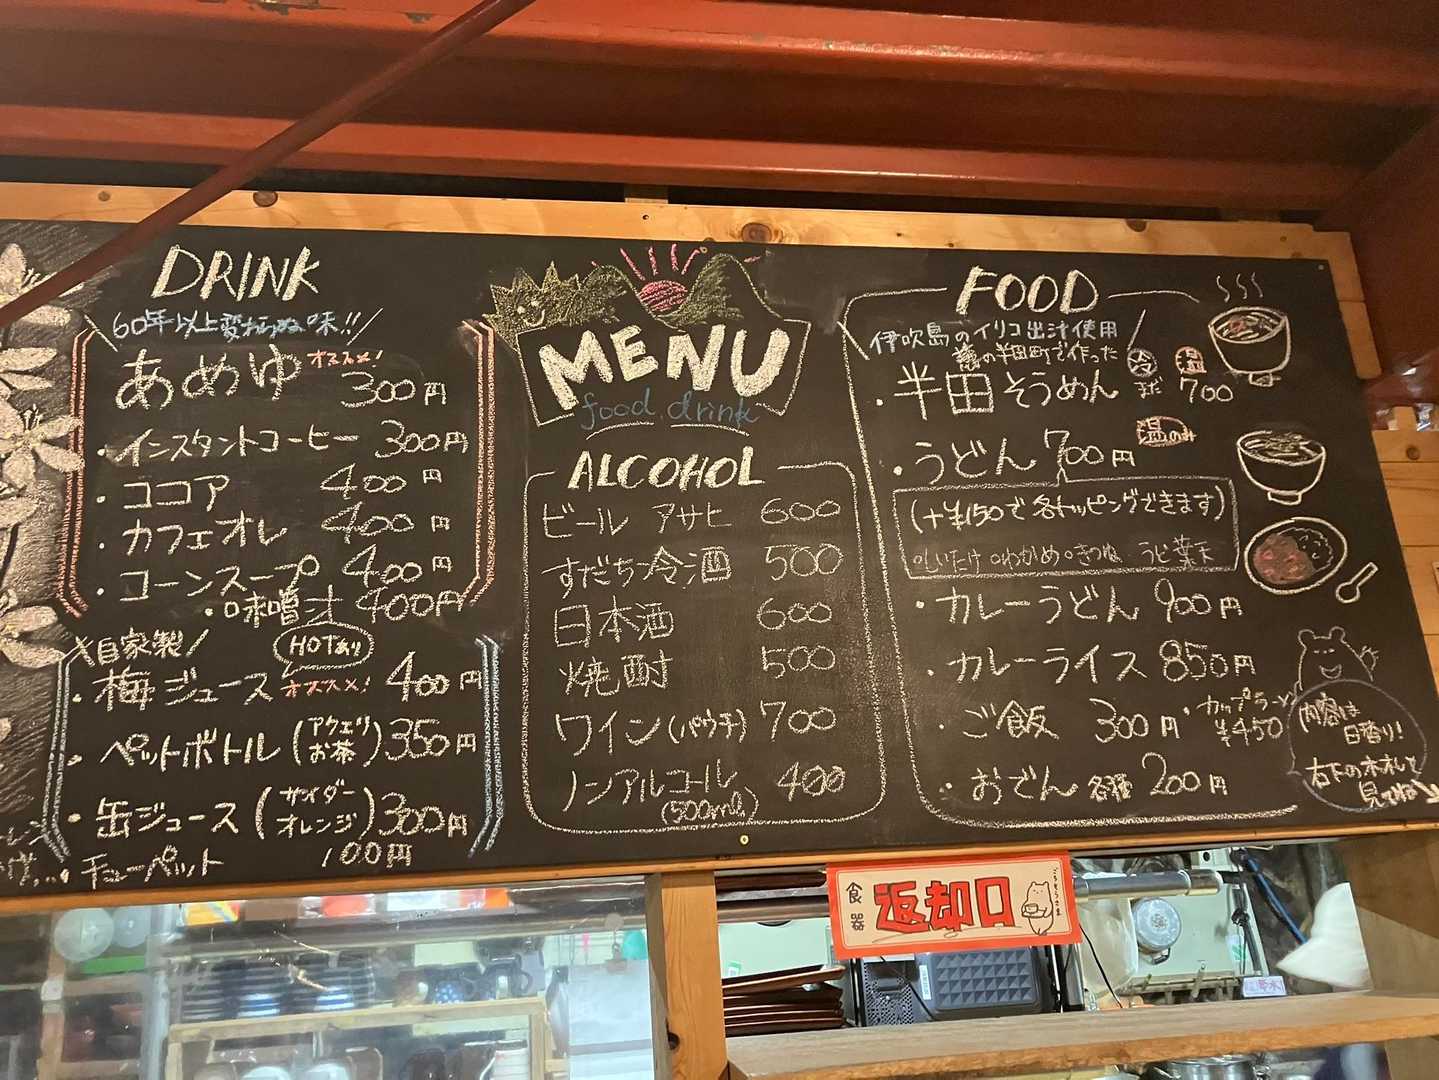 DRINK
60年以上変わらぬ味!!
あめゆ オススメ! 300円
・インスタントコーヒー 300円
・ココア 400円
・カフェオレ 400円
・コーンスープ 400円
・味噌汁 400円
自家製
HOTあり
・梅ジュース オススメ! 400円
・ペットボトル (アクエリ お茶) 350円
・缶ジュース (サイダー オレンジ) 300円
チューペット 100円
MENU
food.drink
ALCOHOL
ビール アサヒ 600
すだち冷酒 500
日本酒 600
焼酎 500
ワイン(パウチ) 700
ノンアルコール (500ml) 400
FOOD
伊吹島のイリコ出汁使用
の半田町で作った
・半田そうめん 冷 まだ 温 700
・うどん 700円 温のみ
(+¥150で各トッピングできます)
○しいたけ ○わかめ ○きつね
・カレーうどん 900円
・カレーライス 850円
・ご飯 300円 ・カップラーメン ¥450
・おでん 各種 200円
内容は
日替り!
右下の木札して
見てね
食器
返却口
ごちそうさま